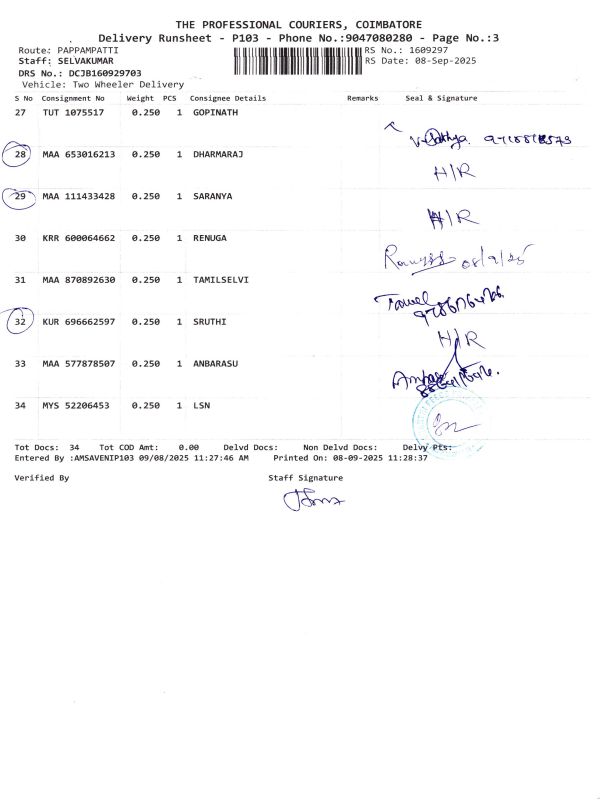 THE PROFESSIONAL COURIERS, COIMBATORE
Delivery Runsheet - P103 - Phone No.:9047080280 - Page No.:3
Route: PAPPAMPATTI RS No.: 1609297
Staff: SELVAKUMAR RS Date: 08-Sep-2025
DRS No.: DCJB160929703
Vehicle: Two Wheeler Delivery
S No Consignment No Weight PCS Consignee Details Remarks Seal & Signature
27 TUT 1075517 0.250 1 GOPINATH
28 MAA 653016213 0.250 1 DHARMARAJ H/R
29 MAA 111433428 0.250 1 SARANYA H/R
30 KRR 600064662 0.250 1 RENUGA 08/9/25
31 MAA 870892630 0.250 1 TAMILSELVI
32 KUR 696662597 0.250 1 SRUTHI H/R
33 MAA 577878507 0.250 1 ANBARASU
34 MYS 52206453 0.250 1 LSN
Tot Docs: 34 Tot COD Amt: 0.00 Delvd Docs: Non Delvd Docs: Delvy Pts:
Entered By :AMSAVENIP103 09/08/2025 11:27:46 AM Printed On: 08-09-2025 11:28:37
Verified By Staff Signature